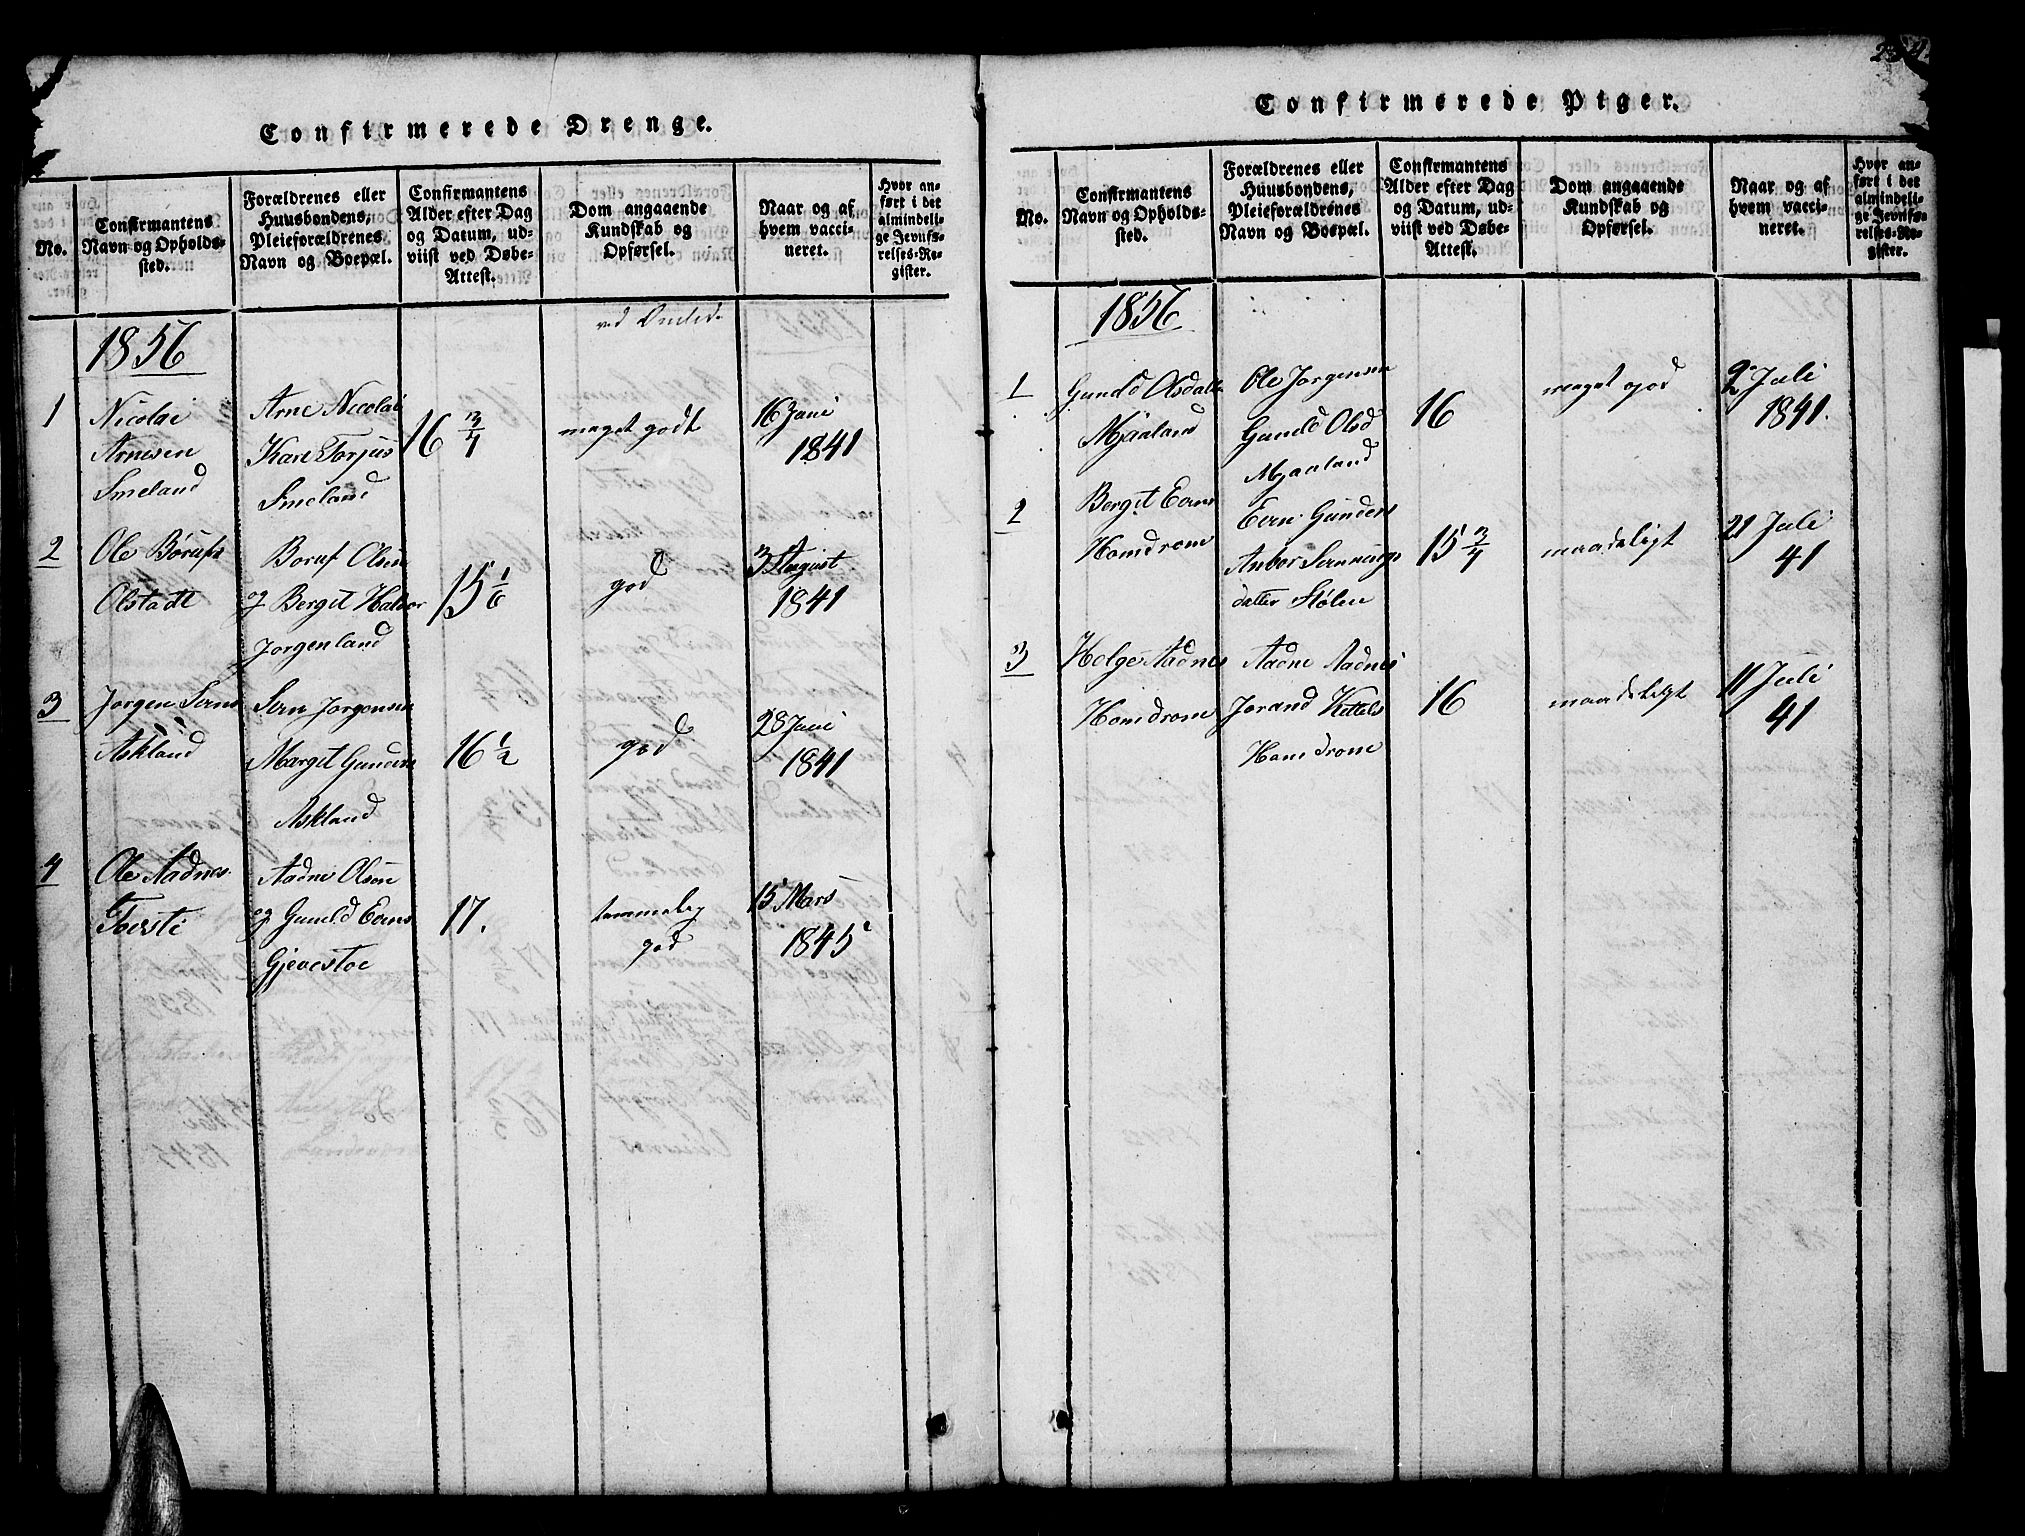 234.
Confirmerede Drenge.
No.
Confirmantens
Navn og Opholds-
sted.
Forældrenes eller
Huusbondens,
Pleieforældrenes
Navn og Boepæl.
Confirmantens
Alder efter Dag
og Datum, ud-
viist ved Døbe-
Attest.
Dom angaaende
Kundskab og
Opførsel.
Naar og af
hvem vacci-
neret.
Hvor an-
ført i det
almindeli-
ge Jevnfø-
relses-Re-
gister.
1856
1
Nicolai
Arnesen
Smeland
Arne Nicolai
Kari Torjus
Smeland
16 3/4
meget godt
16 Juni
1841
2
Ole Børufs
Olstadt
Boruf Olsen
og Bergit Halvor
Jorgenland
15 1/6
god
3 August
1841
3
Jørgen Serns
Askland
Sern Jorgensen
Margit Gunders
Askland
16 1/2
god
28 Juni
1841
4
Ole Aadnes
Toersti
Aadne Olson
og Guneld Eorns
Gjevestoe
17.
temmelig
god
15 Mars
1845
Confirmerede Piger.
No.
Confirmantens
Navn og Opholds-
sted.
Forældrenes eller
Huusbondens,
Pleieforældrenes
Navn og Boepæl.
Confirmantens
Alder efter Dag
og Datum, ud-
viist ved Døbe-
Attest.
Dom angaaende
Kundskab og
Opførsel.
Naar og af
hvem vacci-
neret.
Hvor an-
ført i det
almindeli-
ge Jevnfø-
relses-Re-
gister.
1856
1
Guneld Olsdatt
Mjaaland
Ole Jorgensen
Guneld Olsd
Mjaaland
16
meget god
2 Juli
1841.
2
Bergit Eorns
Homdrom
Eorn Gunders
Anbor
datter Stølen
15 3/4
maadeligt
21 Juli
41
3
Helge Aadnes
Homdrom
Aadne Aadnes
Jorand Kettels
Homdrom
16
maadeligt
11 Juli
41